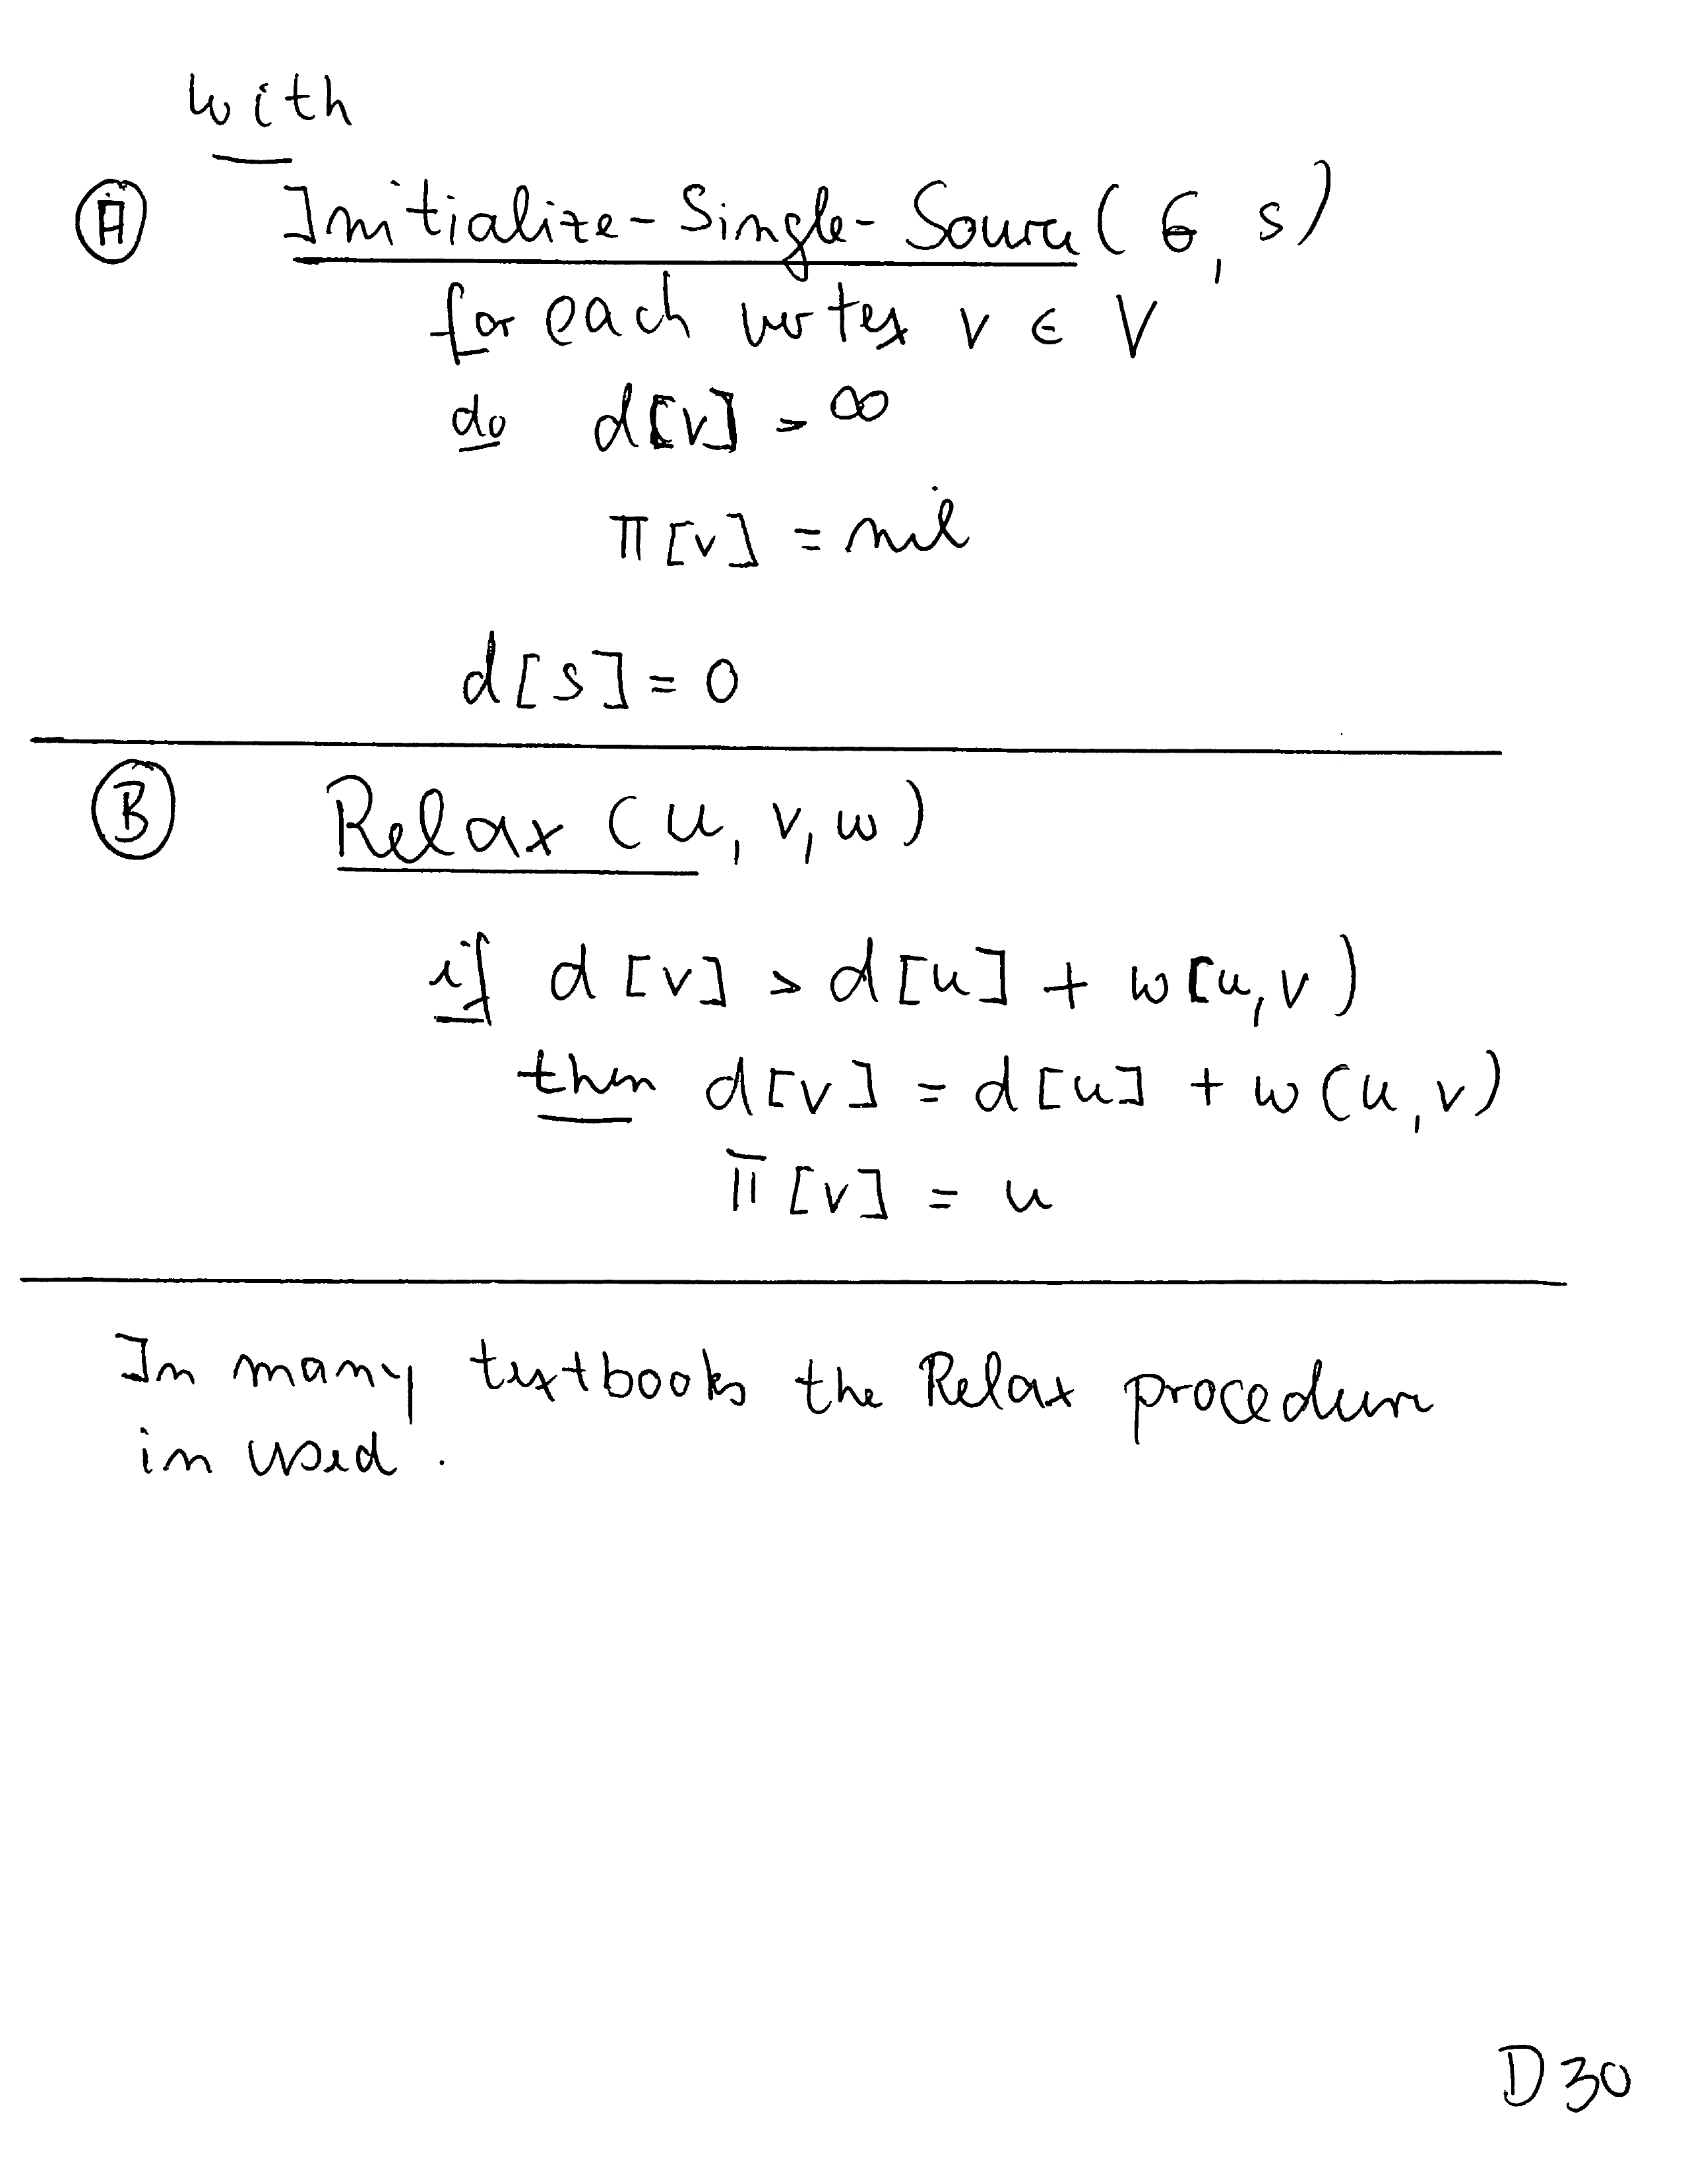 with
(A) Initialize-Single-Source(G, s)
for each vertex v ∈ V
do d[v] = ∞
π[v] = nil
d[s] = 0
(B) Relax (u, v, w)
if d[v] > d[u] + w(u, v)
then d[v] = d[u] + w(u, v)
π[v] = u
In many textbooks the Relax procedure
in used.
D30